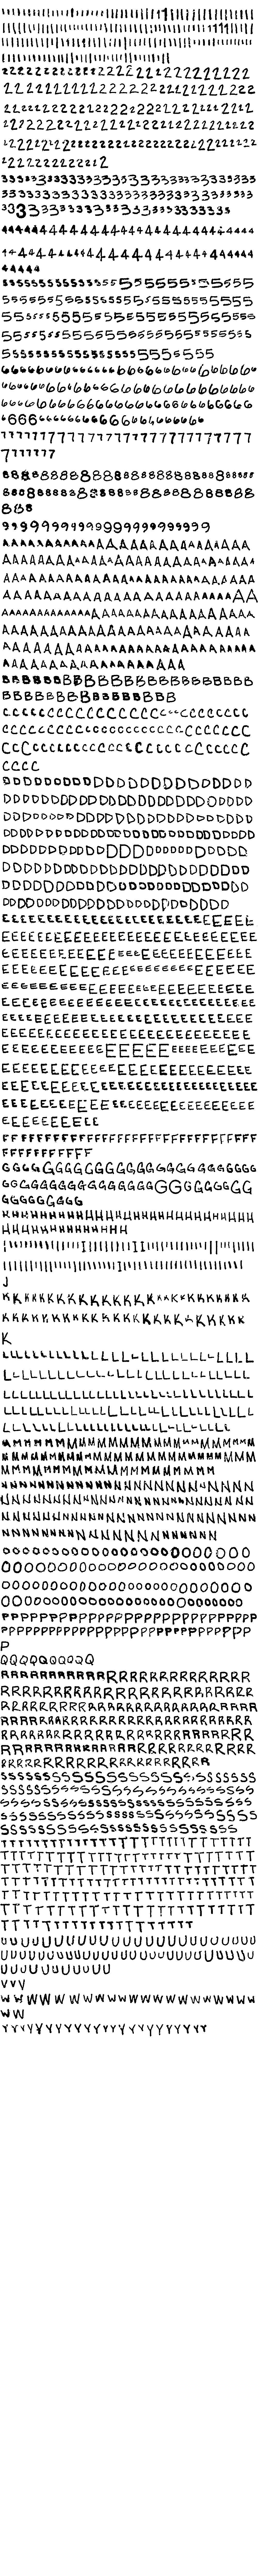 11111111111111111111111111111111111111
11111111111111111111111111111111111111
11111111111111111111111111111111111111
1111111111111111111111111
22222222222222222222222222
2222222222222222222222
22222222222222222222222
2222222222222222222222222
222222222222222222222222222
22222222222222
3333333333333333333333333333
33333333333333333333333333333
33333333333333333333333333
44444444444444444444444444444
444444444444444444444444444
444444
5555555555555555555555555
5555555555555555555555555
5555555555555555555555555
5555555555555555555555555
555555555555555555555
6666666666666666666666666
6666666666666666666666666
66666666666666666666666666
6666666666666666666666
77777777777777777777777777
7777777
88888888888888888888888888
8888888888888888888888888
888
9999999999999999999999
AAAAAAAAAAAAAAAAAAAAAAA
AAAAAAAAAAAAAAAAAAAAAAAA
AAAAAAAAAAAAAAAAAAAAAAAAA
AAAAAAAAAAAAAAAAAAAAAAA
AAAAAAAAAAAAAAAAAAAAAAAAA
AAAAAAAAAAAAAAAAAAAAAA
AAAAAAAAAAAAAAAAAAAAAAAAA
AAAAAAAAAAAAAAAAAAA
BBBBBBBBBBBBBBBBBBBBBBBB
BBBBBBBBBBBBBBBBB
CCCCCCCCCCCCCCCCCCCCCCC
CCCCCCCCCCCCCCCCCCCCCCCC
CCCCCCCCCCCCCCCCCCCCCCC
CCCC
DDDDDDDDDDDDDDDDDDDDDDD
DDDDDDDDDDDDDDDDDDDDDDDD
DDDDDDDDDDDDDDDDDDDDDDDD
DDDDDDDDDDDDDDDDDDDDDDDD
DDDDDDDDDDDDDDDDDDDDDD
DDDDDDDDDDDDDDDDDDDDDDDD
DDDDDDDDDDDDDDDDDDDDDDD
DDDDDDDDDDDDDDDDDDDDDD
EEEEEEEEEEEEEEEEEEEEEEEEEE
EEEEEEEEEEEEEEEEEEEEEEEE
EEEEEEEEEEEEEEEEEEEEEEEE
EEEEEEEEEEEEEEEEEEEEEEEEE
EEEEEEEEEEEEEEEEEEEEEEEEE
EEEEEEEEEEEEEEEEEEEEEEEEE
EEEEEEEEEEEEEEEEEEEEEEEEE
EEEEEEEEEEEEEEEEEEEEEEEE
EEEEEEEEEEEEEEEEEEEEEEE
EEEEEEEEEEEEEEEEEEEEEEEE
EEEEEEEEEEEEEEEEEEEEEEEEEEE
EEEEEEEEEEEEEEEEEEEEEEEEE
EEEEEEEEEE
FFFFFFFFFFFFFFFFFFFFFFFFFFF
FFFFFFFFFFF
GGGGGGGGGGGGGGGGGGGGGGGG
GGGGGGGGGGGGGGGGGGGGGG
GGGGGGGGGG
HHHHHHHHHHHHHHHHHHHHHHHHHH
HHHHHHHHHHHHHH
IIIIIIIIIIIIIIIIIIIIIIIIIIIIIIIIIIIIII
IIIIIIIIIIIIIIIIIIIIIIIIIIIIIIIIIIII
J
KKKKKKKKKKKKKKKKKKKKKKKK
KKKKKKKKKKKKKKKKKKKKKKK
K
LLLLLLLLLLLLLLLLLLLLLLLLL
LLLLLLLLLLLLLLLLLLLLLLLLL
LLLLLLLLLLLLLLLLLLLLLLLLL
LLLLLLLLLLLLLLLLLLLLLLLLL
LLLLLLLLLLLLLLLLLLLLLLL
MMMMMMMMMMMMMMMMMMMMMM
MMMMMMMMMMMMMMMMMMMMMM
MMMMMMMMMMMMMMMMMM
NNNNNNNNNNNNNNNNNNNNNNNN
NNNNNNNNNNNNNNNNNNNNNNNN
NNNNNNNNNNNNNNNNNNNNNNNN
NNNNNNNNNNNNNNNNNNNNN
OOOOOOOOOOOOOOOOOOOOOOO
OOOOOOOOOOOOOOOOOOOOOOO
OOOOOOOOOOOOOOOOOOOOOOO
OOOOOOOOOOOOOOOOOOOOOO
PPPPPPPPPPPPPPPPPPPPPPPPPP
PPPPPPPPPPPPPPPPPPPPPPPPP
P
QQQQQQQQQQ
RRRRRRRRRRRRRRRRRRRRRRRR
RRRRRRRRRRRRRRRRRRRRRRRR
RRRRRRRRRRRRRRRRRRRRRRRRR
RRRRRRRRRRRRRRRRRRRRRRRR
RRRRRRRRRRRRRRRRRRRRRRRR
RRRRRRRRRRRRRRRRRRRRRRRR
RRRRRRRRRRRRRRRRRRRR
SSSSSSSSSSSSSSSSSSSSSSSSS
SSSSSSSSSSSSSSSSSSSSSSSSS
SSSSSSSSSSSSSSSSSSSSSSSSS
SSSSSSSSSSSSSSSSSSSSSSSS
SSSSSSSSSSSSSSSSSSSSSSS
TTTTTTTTTTTTTTTTTTTTTTTTTT
TTTTTTTTTTTTTTTTTTTTTTTTT
TTTTTTTTTTTTTTTTTTTTTTTTT
TTTTTTTTTTTTTTTTTTTTTTTTT
TTTTTTTTTTTTTTTTTTTTTTTT
TTTTTTTTTTTTTTTTTTTTTTTT
TTTTTTTTTTTTTTTTTTT
UUUUUUUUUUUUUUUUUUUUUUUU
UUUUUUUUUUUUUUUUUUUUUUUU
UUUUUUUUUUU
VVV
WWWWWWWWWWWWWWWWWWWWWW
WW
YYYYYYYYYYYYYYYYYYYYYYYY